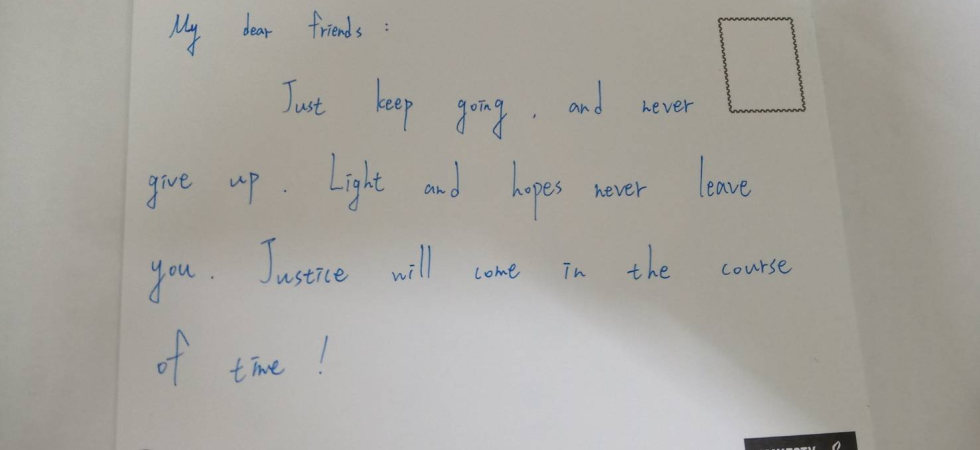 My dear friends :
Just keep going, and never
give up. Light and hopes never leave
you. Justice will come in the course
of time !